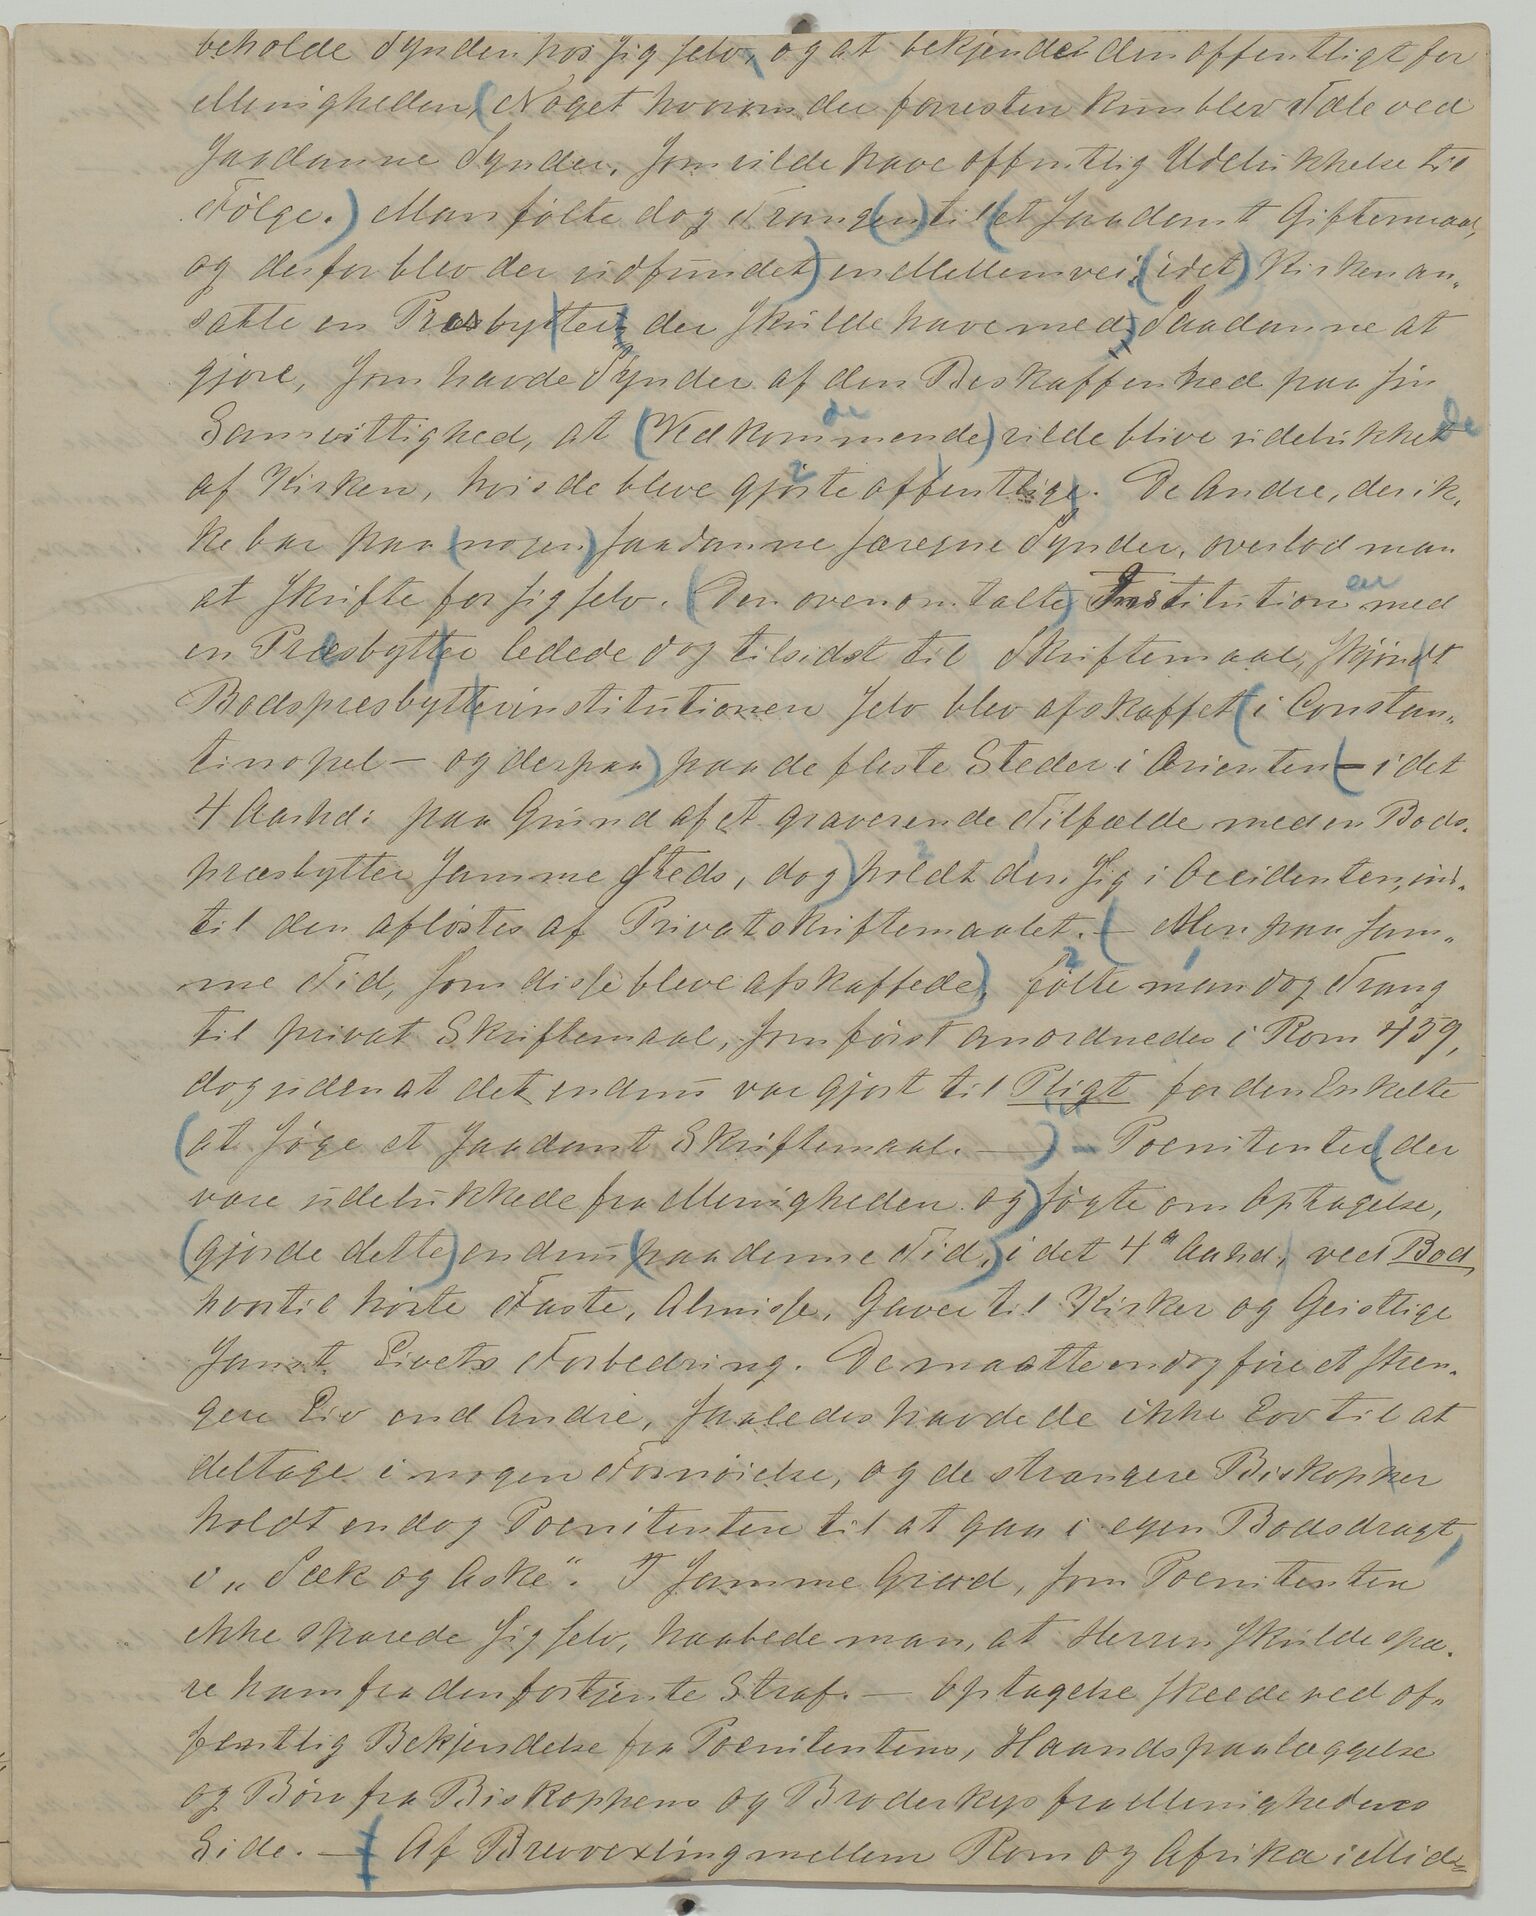 beholde Synden hos sig selv, og at bekjende den offentligt for
Menigheden, (Noget hvorom der forresten kun blev Tale ved
saadanne Synder, som vilde have offentlig Udelukkelse til
Følge.) Man følte dog Trang(en) til (et saadant Giftermaal,
og derfor blev der udfundet) en Mellemvei, (idet) Kirken an-
satte en Presbytter, der skulde have med Saadanne at
gjøre, som havde Synder af den Beskaffenhed paa sin
Samvittighed, at (Vedkommende) de vilde blive udelukkede
af Kirken, hvis de bleve gjorte offentlige. De Andre, der ik-
ke bar paa (nogen) saadanne særegne Synder, overlod man
at skrifte for sig selv. (Den ovenomtalte) Institutionen med
en Presbytter ledede dog tilsidst til Skriftemaal, skjøndt
Bodspresbytterinstitutionen selv blev afskaffet (i Constan-
tinopel – og derpaa) paa de fleste Steder i Orienten (– i det
4 Aarhd: paa Grund af et graverende Tilfælde med en Bods-
præsbytter samme Steds, dog) holdt den sig i Occidenten, ind-
til den afløstes af Privatskriftemaalet. (– Men paa sam-
me Tid, som disse bleve afskaffede), følte man dog Trang
til privat Skriftemaal, som først anordnedes i Rom 459,
dog uden at det endnu var gjort til Pligt for den Enkelte
(at søge et saadant Skriftemaal. –) – Poenitenter (der
vare udelukkede fra Menigheden og) søgte om Optagelse,
(gjorde dette) endnu (paa denne Tid,) i det 4de Aarhd, ved Bod,
hvortil hørte Faste, Almisse, Gaver til Kirker og Geistlige
samt Livets Forbedring. De maatte endog føre et stren-
gere Liv end Andre, saaledes havde de ikke Lov til at
deltage i nogen Fornøielse, og de strengere Biskopper
holdt endog Poenitentere til at gaa i egen Bodsdragt,
i „Sæk og Aske". I samme Grad, som Poenitenten
ikke sparede sig selv, haabede man, at Herren skulde spa-
re ham fra den fortjente Straf. – Optagelse skeede ved of-
fentlig Bekjendelse fra Poenitentens, Haandspaalæggelse
og Bøn fra Biskoppens og Broderkys fra Menighedens
Side. – Af Brevvexling mellem Rom og Afrika i Mid-